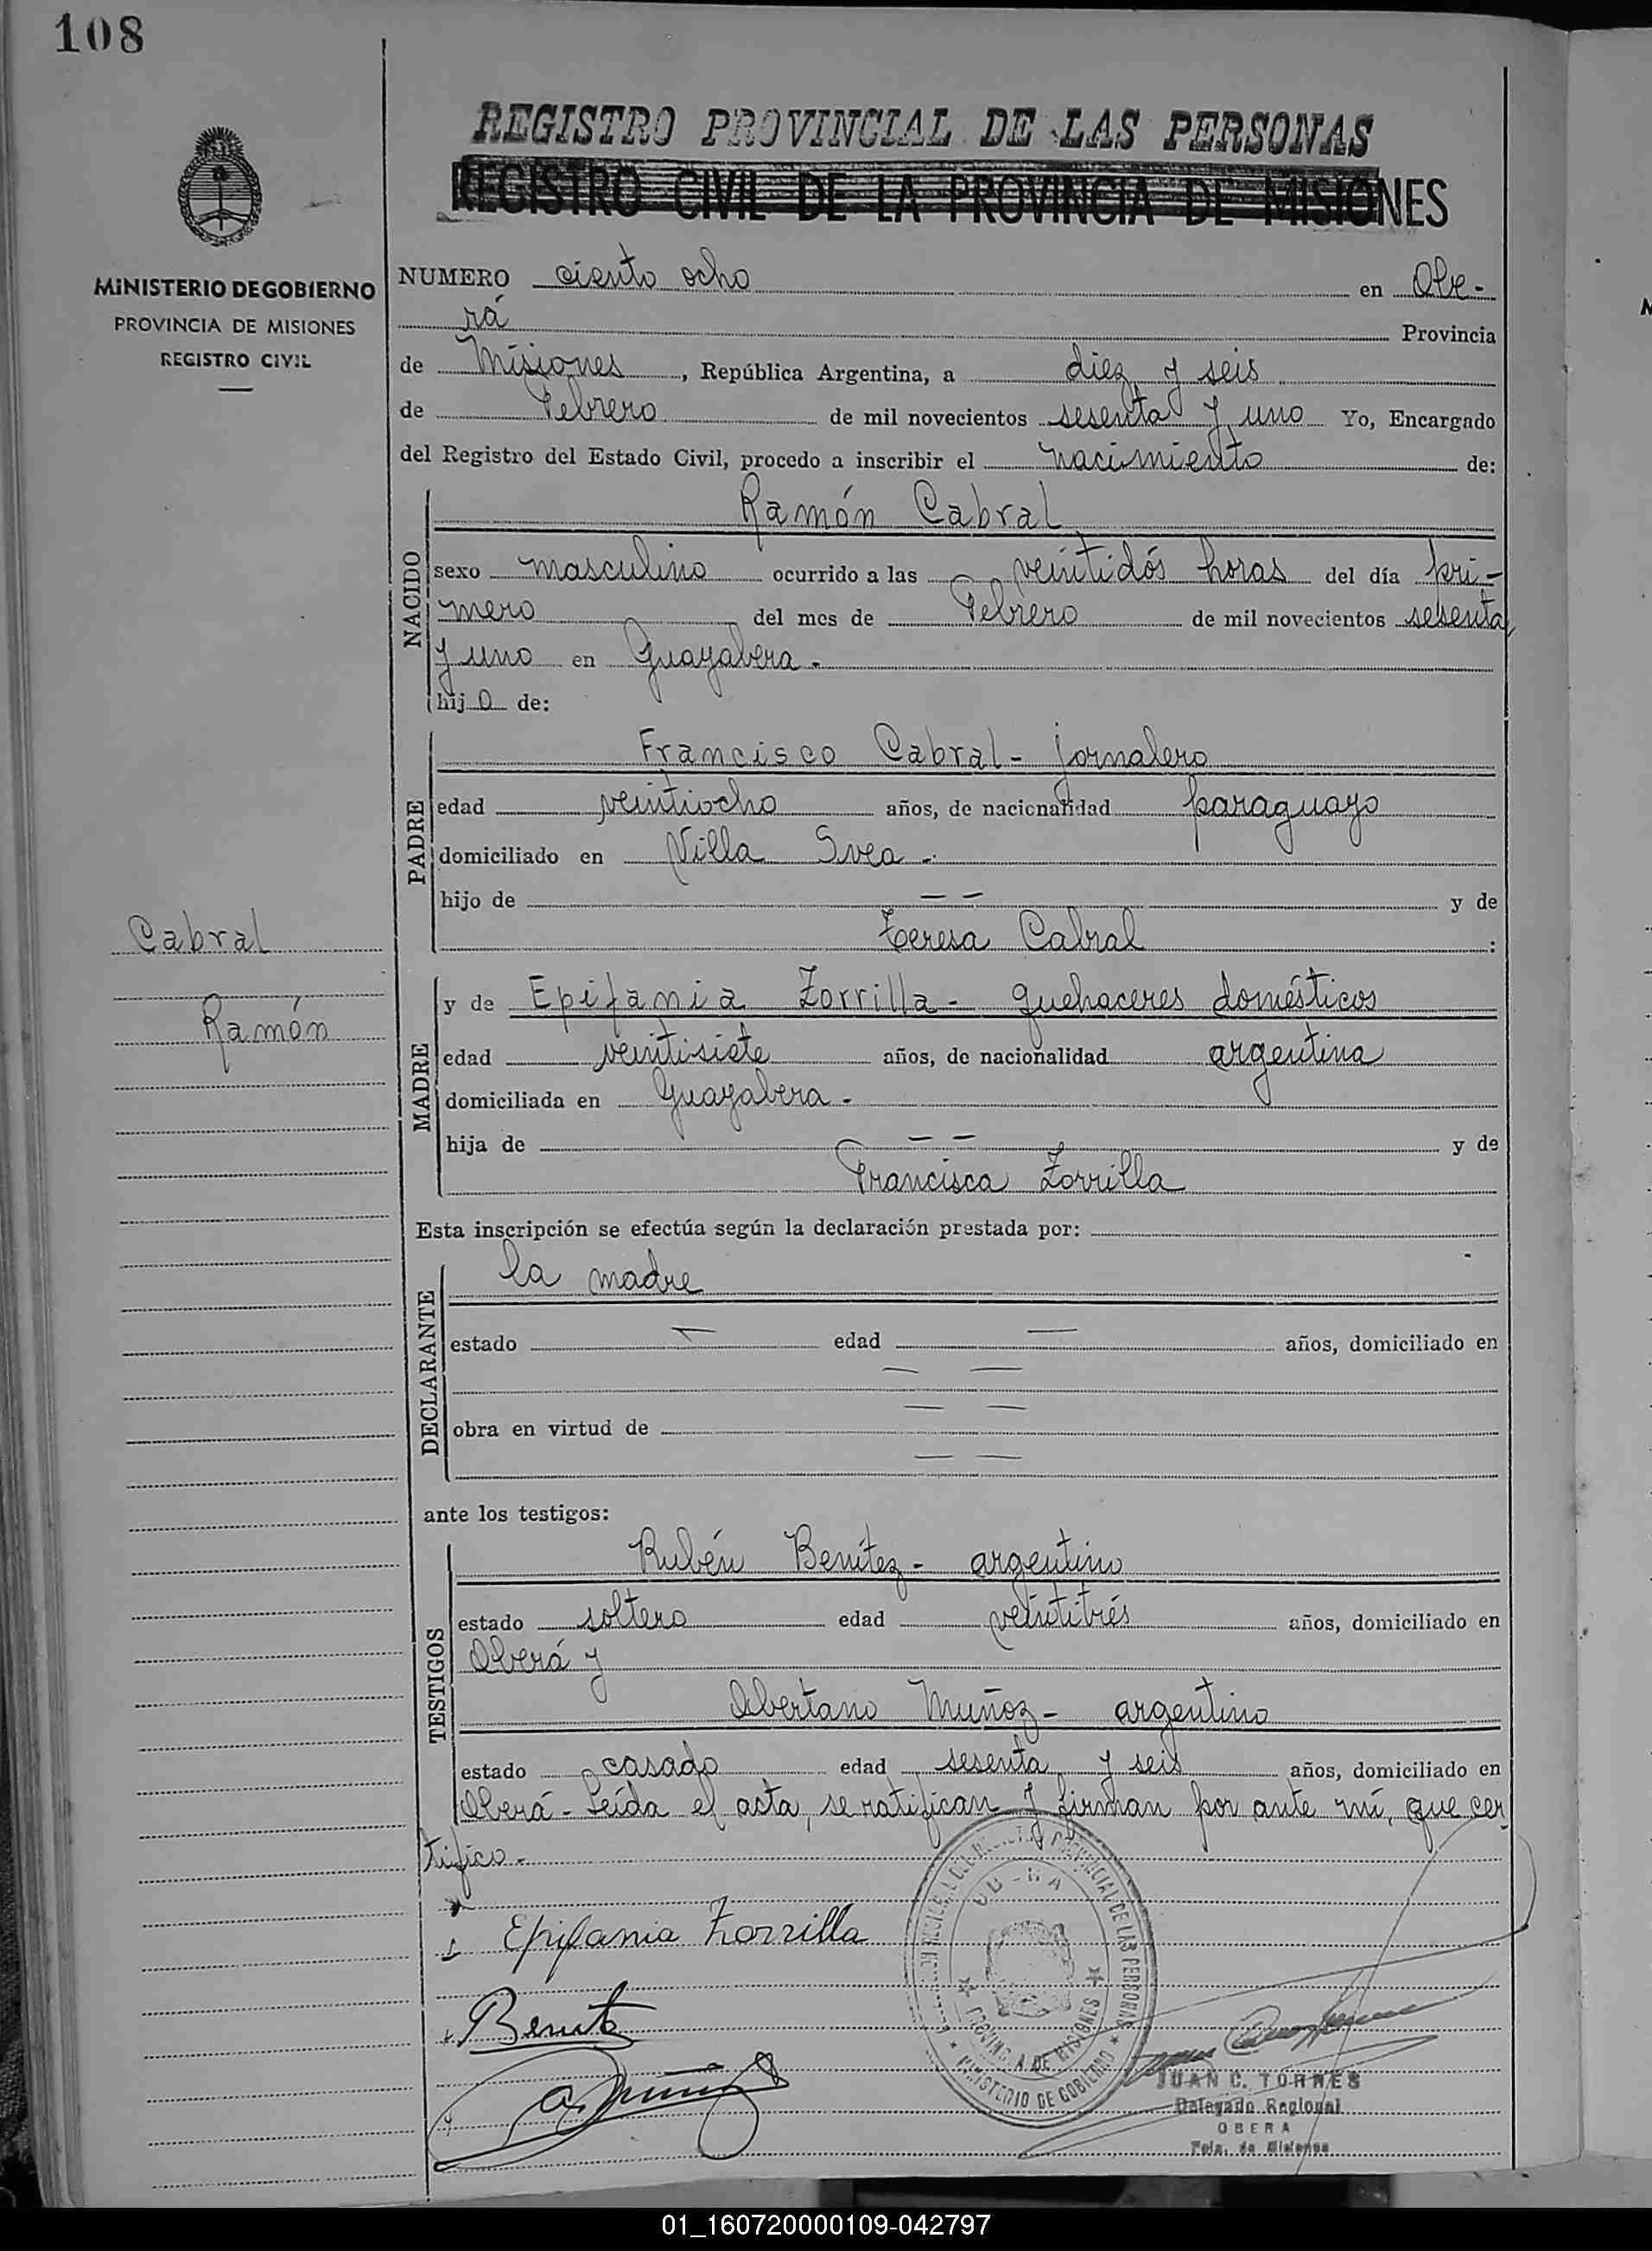 108
REGISTRO PROVINCIAL DE LAS PERSONAS
REGISTRO CIVIL DE LA PROVINCIA DE MISIONES
MINISTERIO DE GOBIERNO
PROVINCIA DE MISIONES
REGISTRO CIVIL
NUMERO ciento ocho en Obe-
rá Provincia
de Misiones, República Argentina, a diez y seis
de Febrero de mil novecientos sesenta y uno Yo, Encargado
del Registro del Estado Civil, procedo a inscribir el nacimiento de:
NACIDO
Ramón Cabral
sexo masculino ocurrido a las veintidós horas del día pri-
mero del mes de Febrero de mil novecientos sesenta
y uno en Guayabera.
hijo de:
PADRE
Francisco Cabral - jornalero
edad veintiocho años, de nacionalidad paraguayo
domiciliado en Villa Svea -.
hijo de — — y de
Teresa Cabral :
Cabral
Ramón
MADRE
y de Epifania Zorrilla - quehaceres domésticos
edad veintisiete años, de nacionalidad argentina
domiciliada en Guayabera -
hija de — — y de
Francisca Zorrilla
Esta inscripción se efectúa según la declaración prestada por:
DECLARANTE
la madre
estado — edad — años, domiciliado en
— —
obra en virtud de — —
— —
ante los testigos:
TESTIGOS
Rubén Benítez - argentino
estado soltero edad veintitrés años, domiciliado en
Oberá y
Abertano Muñoz - argentino
estado casado edad sesenta y seis años, domiciliado en
Oberá - Leída el acta, se ratifican y firman por ante mí, que cer
tifico -
Epifania Zorrilla
Benitez
A. Muñoz
PROVINCIA DE MISIONES
MINISTERIO DE GOBIERNO
JUAN C. TORRES
Delegado Regional
OBERA
Pcia. de Misiones
01_160720000109-042797